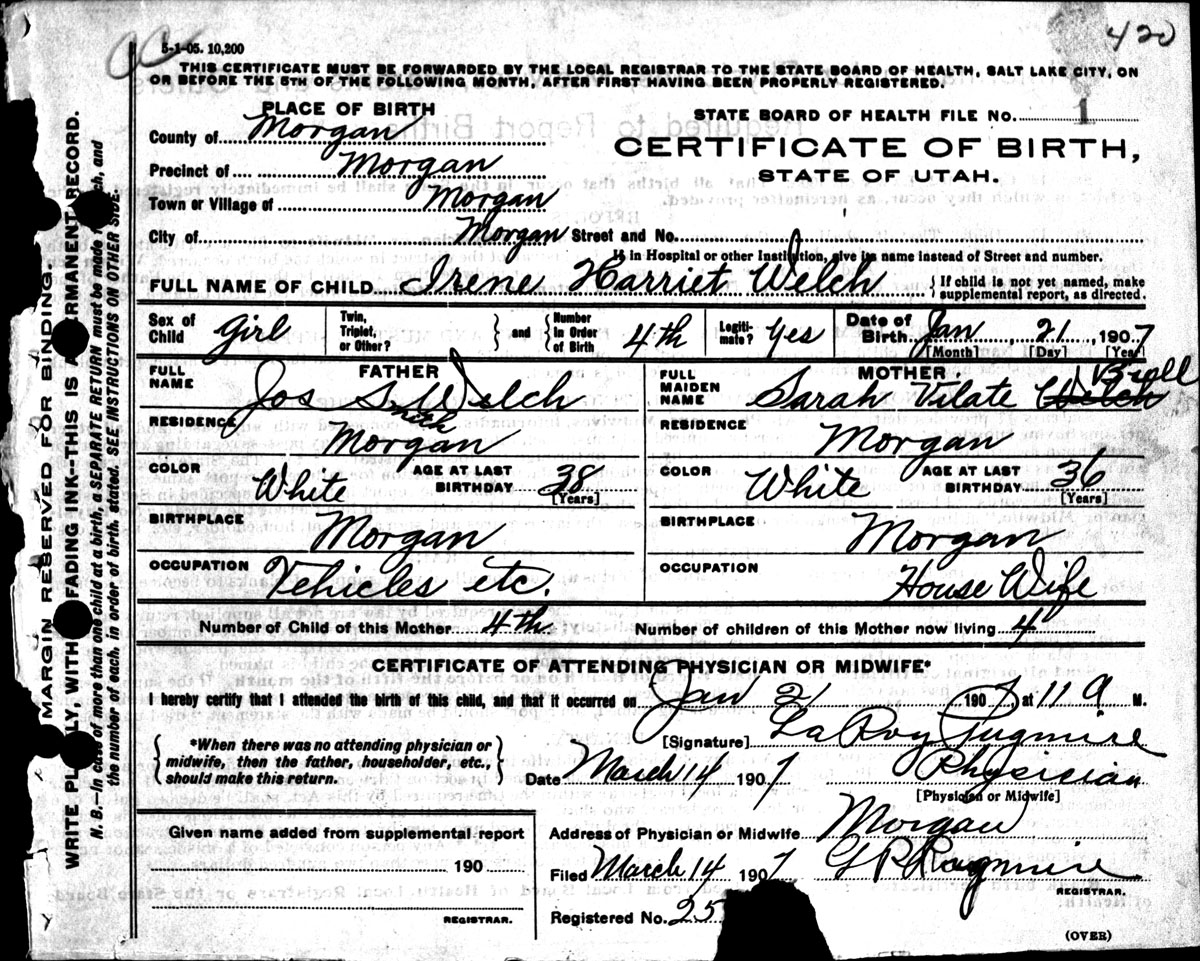 420
5-1-05. 10,200
THIS CERTIFICATE MUST BE FORWARDED BY THE LOCAL REGISTRAR TO THE STATE BOARD OF HEALTH, SALT LAKE CITY, ON
OR BEFORE THE 5TH OF THE FOLLOWING MONTH, AFTER FIRST HAVING BEEN PROPERLY REGISTERED.
PLACE OF BIRTH
County of Morgan
Precinct of Morgan
Town or Village of Morgan
City of Morgan Street and No.
STATE BOARD OF HEALTH FILE No. 1
CERTIFICATE OF BIRTH,
STATE OF UTAH.
If in Hospital or other Institution, give its name instead of Street and number.
FULL NAME OF CHILD Irene Harriet Welch
If child is not yet named, make
supplemental report, as directed.
Sex of Child Girl
Twin, Triplet, or Other? and Number in Order of Birth 4th
Legitimate? Yes
Date of Birth Jan 21, 1907
[Month] [Day] [Year]
FATHER
FULL NAME Jos Smith Welch
RESIDENCE Morgan
COLOR White AGE AT LAST BIRTHDAY 38 [Years]
BIRTHPLACE Morgan
OCCUPATION Vehicles etc.
MOTHER
FULL MAIDEN NAME Sarah Vilate Welch
RESIDENCE Morgan
COLOR White AGE AT LAST BIRTHDAY 36 [Years]
BIRTHPLACE Morgan
OCCUPATION House Wife
Number of Child of this Mother 4th Number of children of this Mother now living 4
CERTIFICATE OF ATTENDING PHYSICIAN OR MIDWIFE*
I hereby certify that I attended the birth of this child, and that it occurred on Jan 21 1907 at 11 a M.
*When there was no attending physician or
midwife, then the father, householder, etc.,
should make this return.
[Signature] LaRoy Pugmire
Date March 14 1907 Physician
[Physician or Midwife]
Given name added from supplemental report
190
REGISTRAR.
Address of Physician or Midwife Morgan
Filed March 14 1907
REGISTRAR.
Registered No. 25
(OVER)
MARGIN RESERVED FOR BINDING.
WRITE PLAINLY, WITH FADING INK--THIS IS A PERMANENT RECORD.
N. B.--In case of more than one child at a birth, a SEPARATE RETURN must be made for each, and
the number of each, in order of birth, stated. SEE INSTRUCTIONS ON OTHER SIDE.